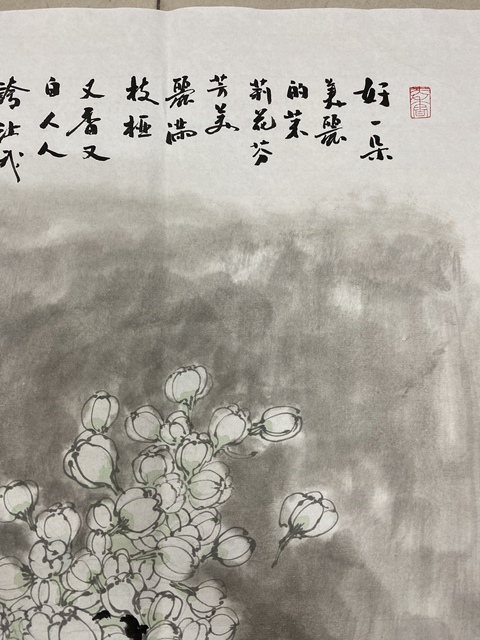 好一朵
美麗
的茉
莉花芬
芳美
麗滿
枝椏
又香又
白人人
誇让我